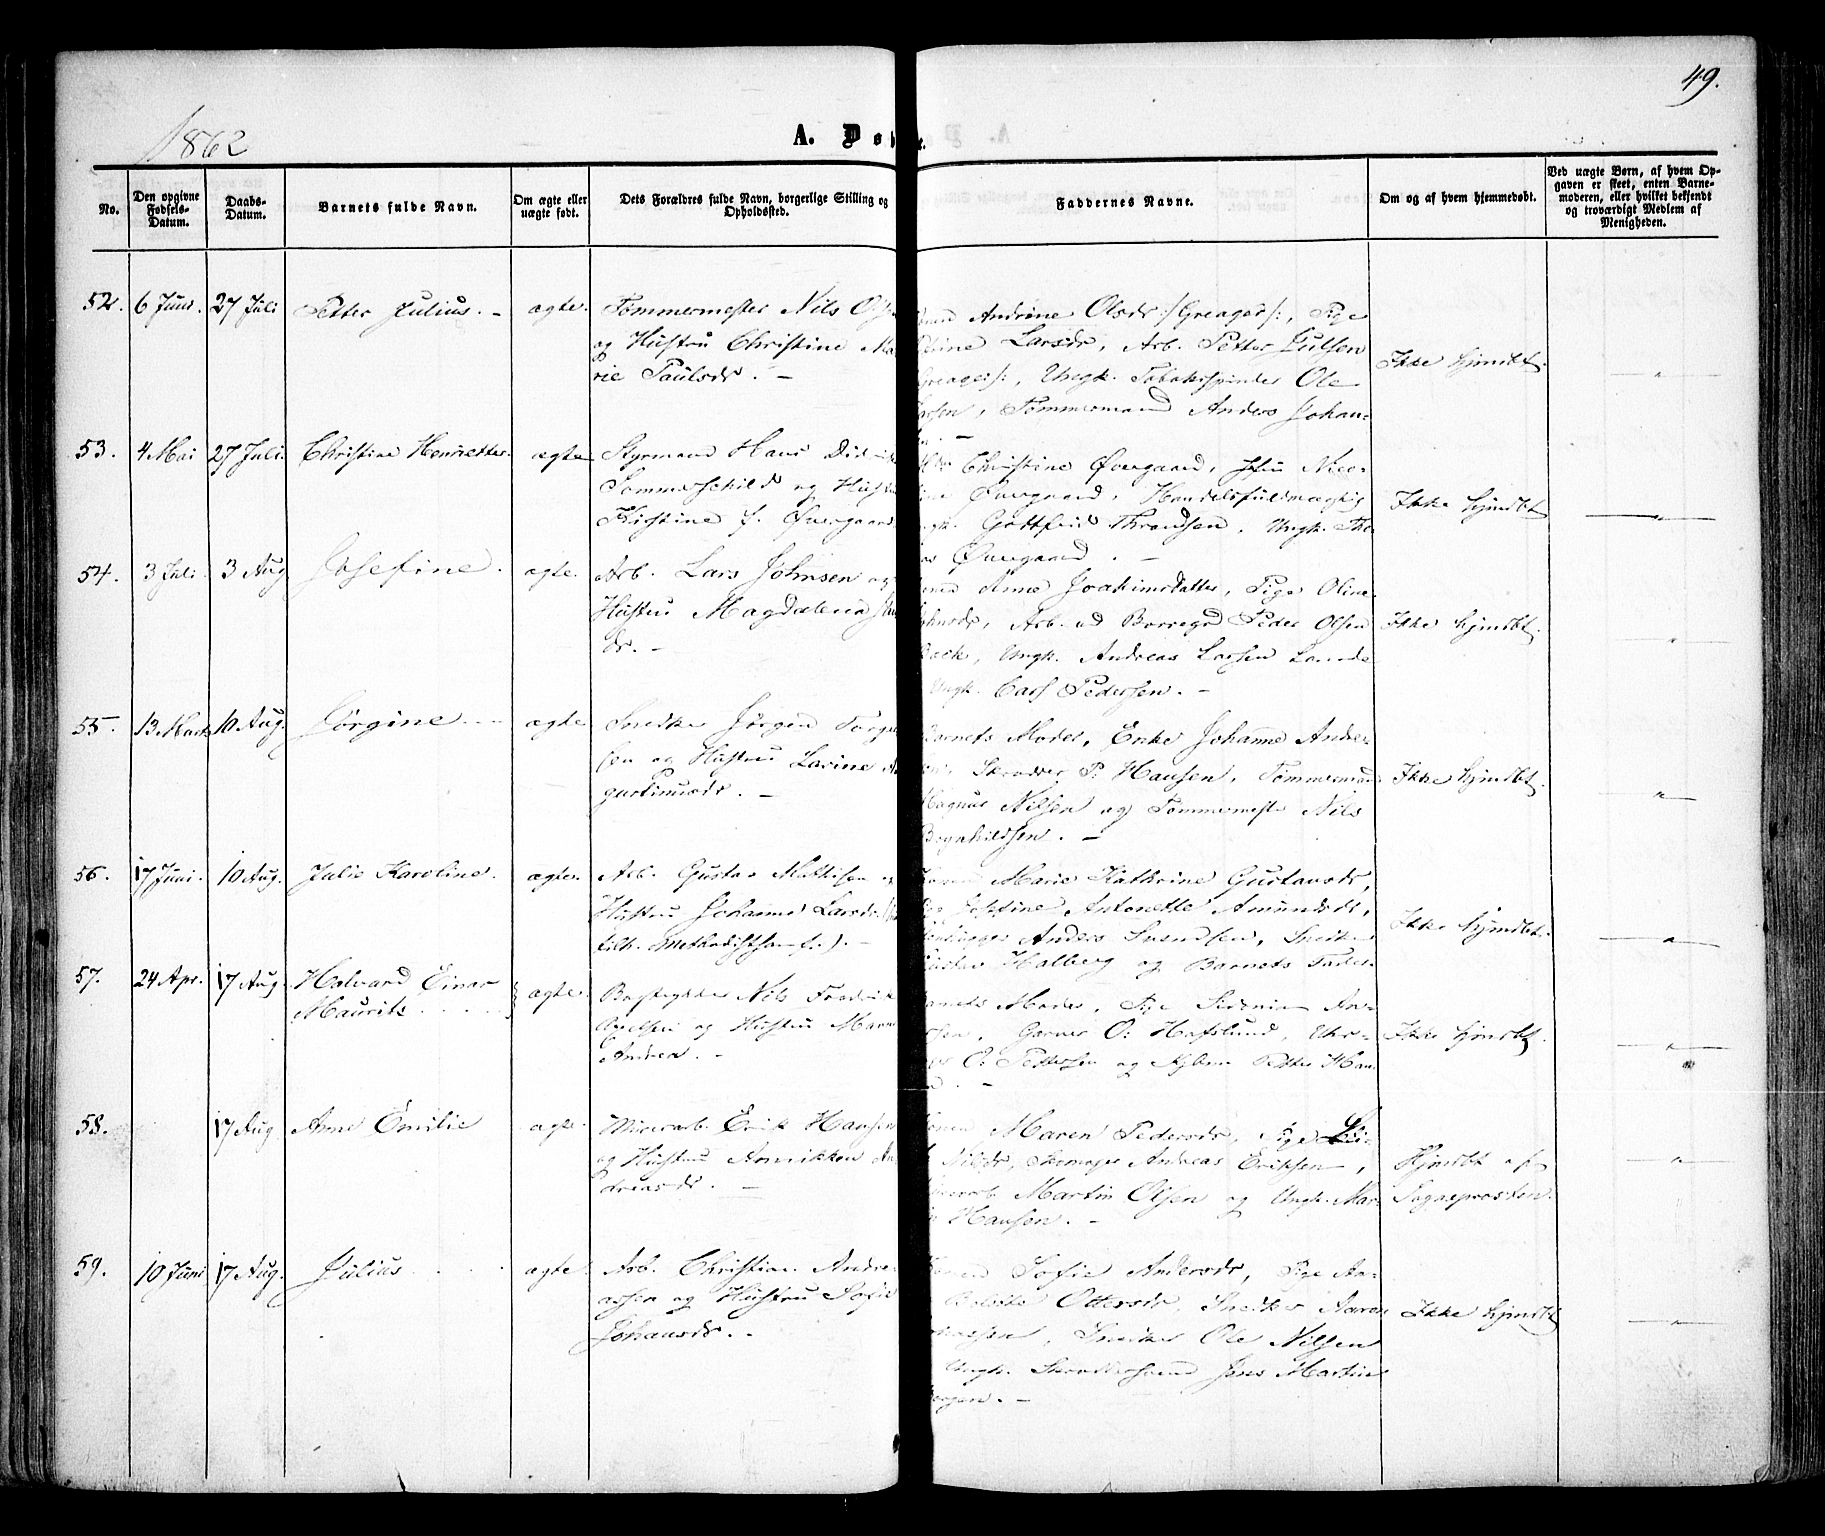 49.
1862
A. Døbte.
No.
Den opgivne Fødsels-Datum.
Daabs-Datum.
Barnets fulde Navn.
Om ægte eller uægte født.
Dets Forældres fulde Navn, borgerlige Stilling og Opholdssted.
Faddernes Navne.
Om og af hvem hjemmedøbt.
Ved uægte Børn, af hvem Opgaven er skeet, enten Barnemoderen, eller hvilket bekjendt og troværdigt Medlem af Menigheden.
52. 6 Juni. 27 Juli Petter Julius. - ægte. Tømmermester Nils
og Hustru Christine Ma
rie Paulsdr. -
Andrine Olsdr /:Greager:/, Pige
Larsdr, Arb. Petter Julsen
Greager:/, Ungk. Tobaksspinder Ole
Tømmermand Anders Johan-
Ikke hjmdbt.
53. 4 Mai 27 Juli. Christine Henriette. ægte Styrmand Hans
Sommerschild og Hustr
Kirstine f. Øvergaard
Christine Øvergaard, Nico-
Øvergaard, Handelsfuldmægtig
Gottfrid Throndsen, Ungk. Tho-
Øvergaard. -
Ikke hjmdbt
54. 3 Juli. 3 Aug Josefine. ægte. Arb. Lars Johnsen og
Hustru Magdalena
dr. -
Anne Joakimsdatter, Pige Oline
Arb. ved Borregd Peder Olsen
Bæck, Ungk. Andreas Larsen Lande
Ungk. Carl Pedersen. -
Ikke hjmdbt.
55. 13 Marts 10 Aug. Jørgine ægte Snedker Jørgen Torger
sen og Hustru Lavine
gustinusdr. -
Barnets Moder, Enke Johanne Andre-
Skrædder P. Hansen, Tømmermand
Magnus Nilsen og Tømmermest. Nils
Bognhildsen. -
Ikke hjmdbt.
56. 17 Juni. 10 Aug. Julie Karoline. ægte. Arb. Gustav Mattisen og
Hustru Johanne Larsdr.
tilh. Methodistsamf.). -
Marie Kathrine Gustavsdr,
Josefine Antonette Amundsdr,
Anders Svendsen, Snedker
Gustav Halberg og Barnets Fader
Ikke hjmdbt.
57. 24 Apr. 17 Aug. Halvard Einar
Maurits ægte Nils Fredrik
Axelsen og Hustru Maren
Andrea. -
Moder, Pige Sidenia An-
Garver O: Hafslund, Uhr-
O: Pettersen og Petter Han
Ikke hjmdbt.
58. 17 Aug Anne Emilie ægte. Minerarb. Erik Hansen
og Hustru Annikken An
dreasdr. -
Maren Pedersdr, Pige
Nilsdr, Skomager Andreas Eriksen,
Martin Olsen og Ungk. Mar-
Hansen. -
Hjmdbt af
Sogneprosten.
59. 10 Juni 17 Aug. Julius ægte. Arb. Christian Andre
assen og Hustru Sofie
Johansdr. -
Sofie Andersdr, Pige An-
Ottersdr, Snedker Aaren
Snedker Ole Nilsen
Ungk. Skræddersvend Jens Martin
Ikke hjmdbt